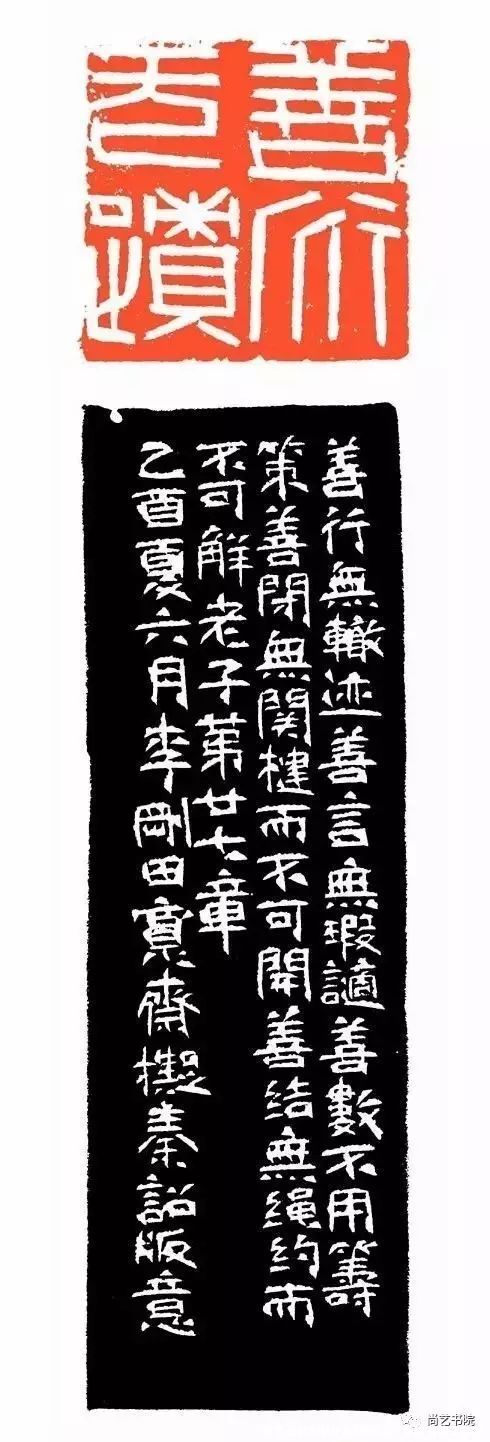 善行
无蹟
善行無轍迹善言無瑕謫善數不用籌
策善閉無関楗而不可開善结無绳约而
不可解老子第廿七章
乙酉夏六月李剛田寬齋擬秦詔版意
尚艺书院